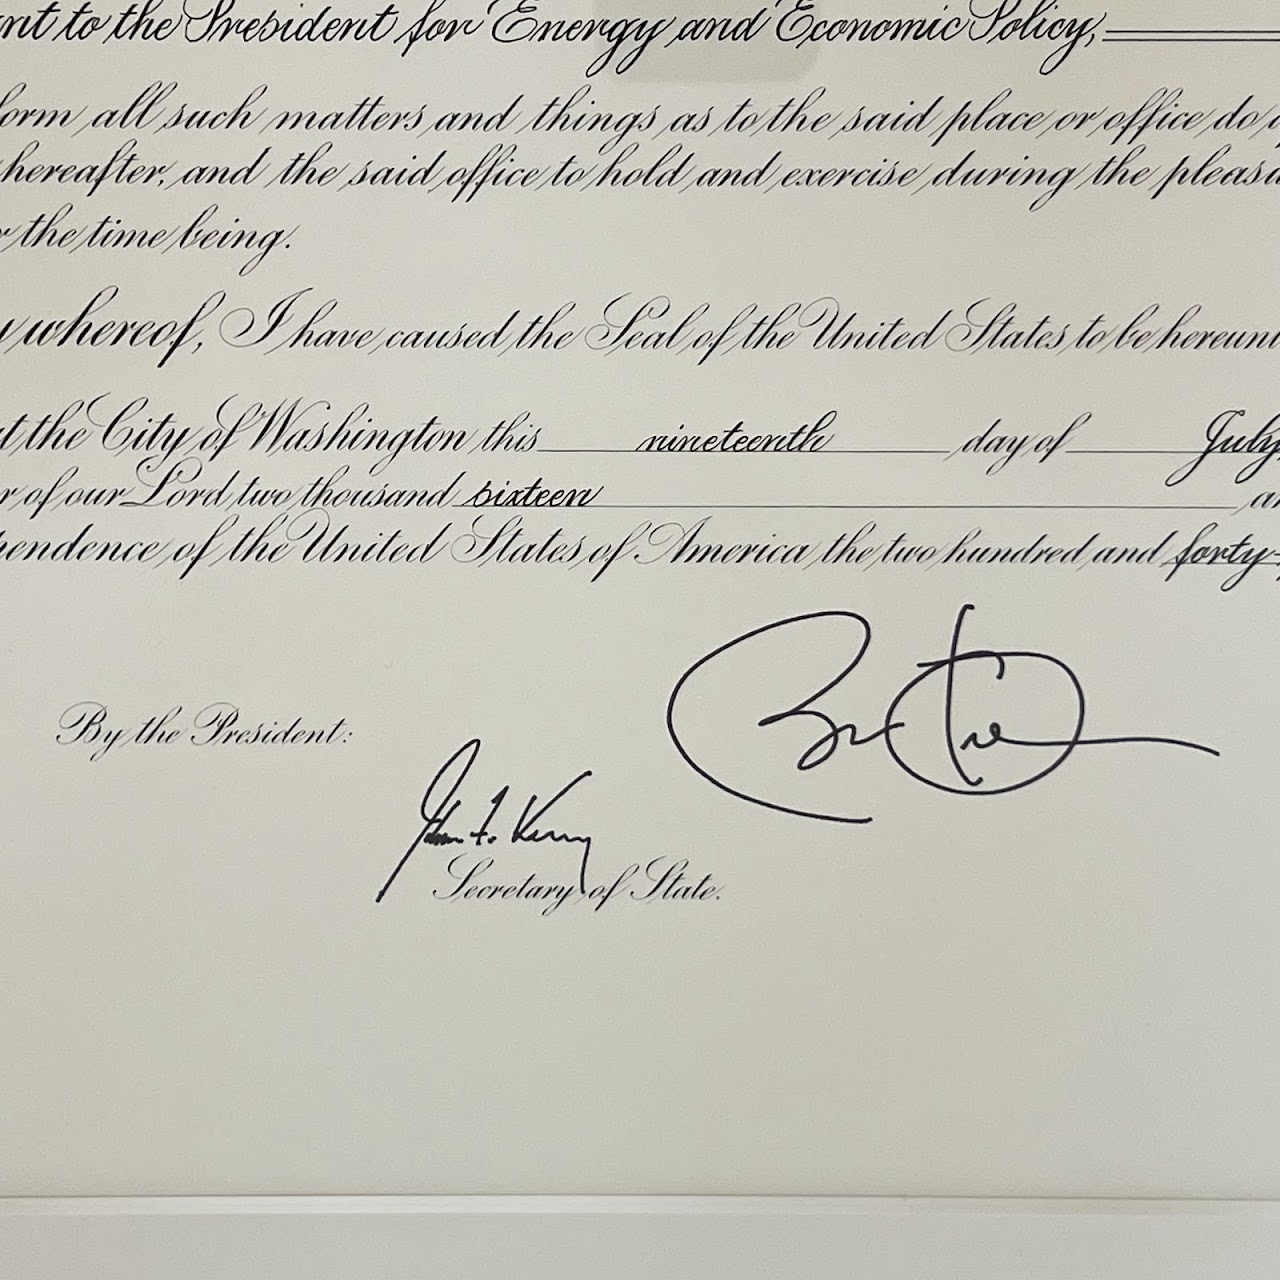 nt to the President for Energy and Economic Policy,
form all such matters and things as to the said place or office do
hereafter, and the said office to hold and exercise during the pleasu
r the time being.
y whereof, I have caused the Seal of the United States to be hereun
at the City of Washington this nineteenth day of July,
r of our Lord two thousand sixteen an
pendence of the United States of America the two hundred and forty-
By the President:
John F. Kerry
Secretary of State.